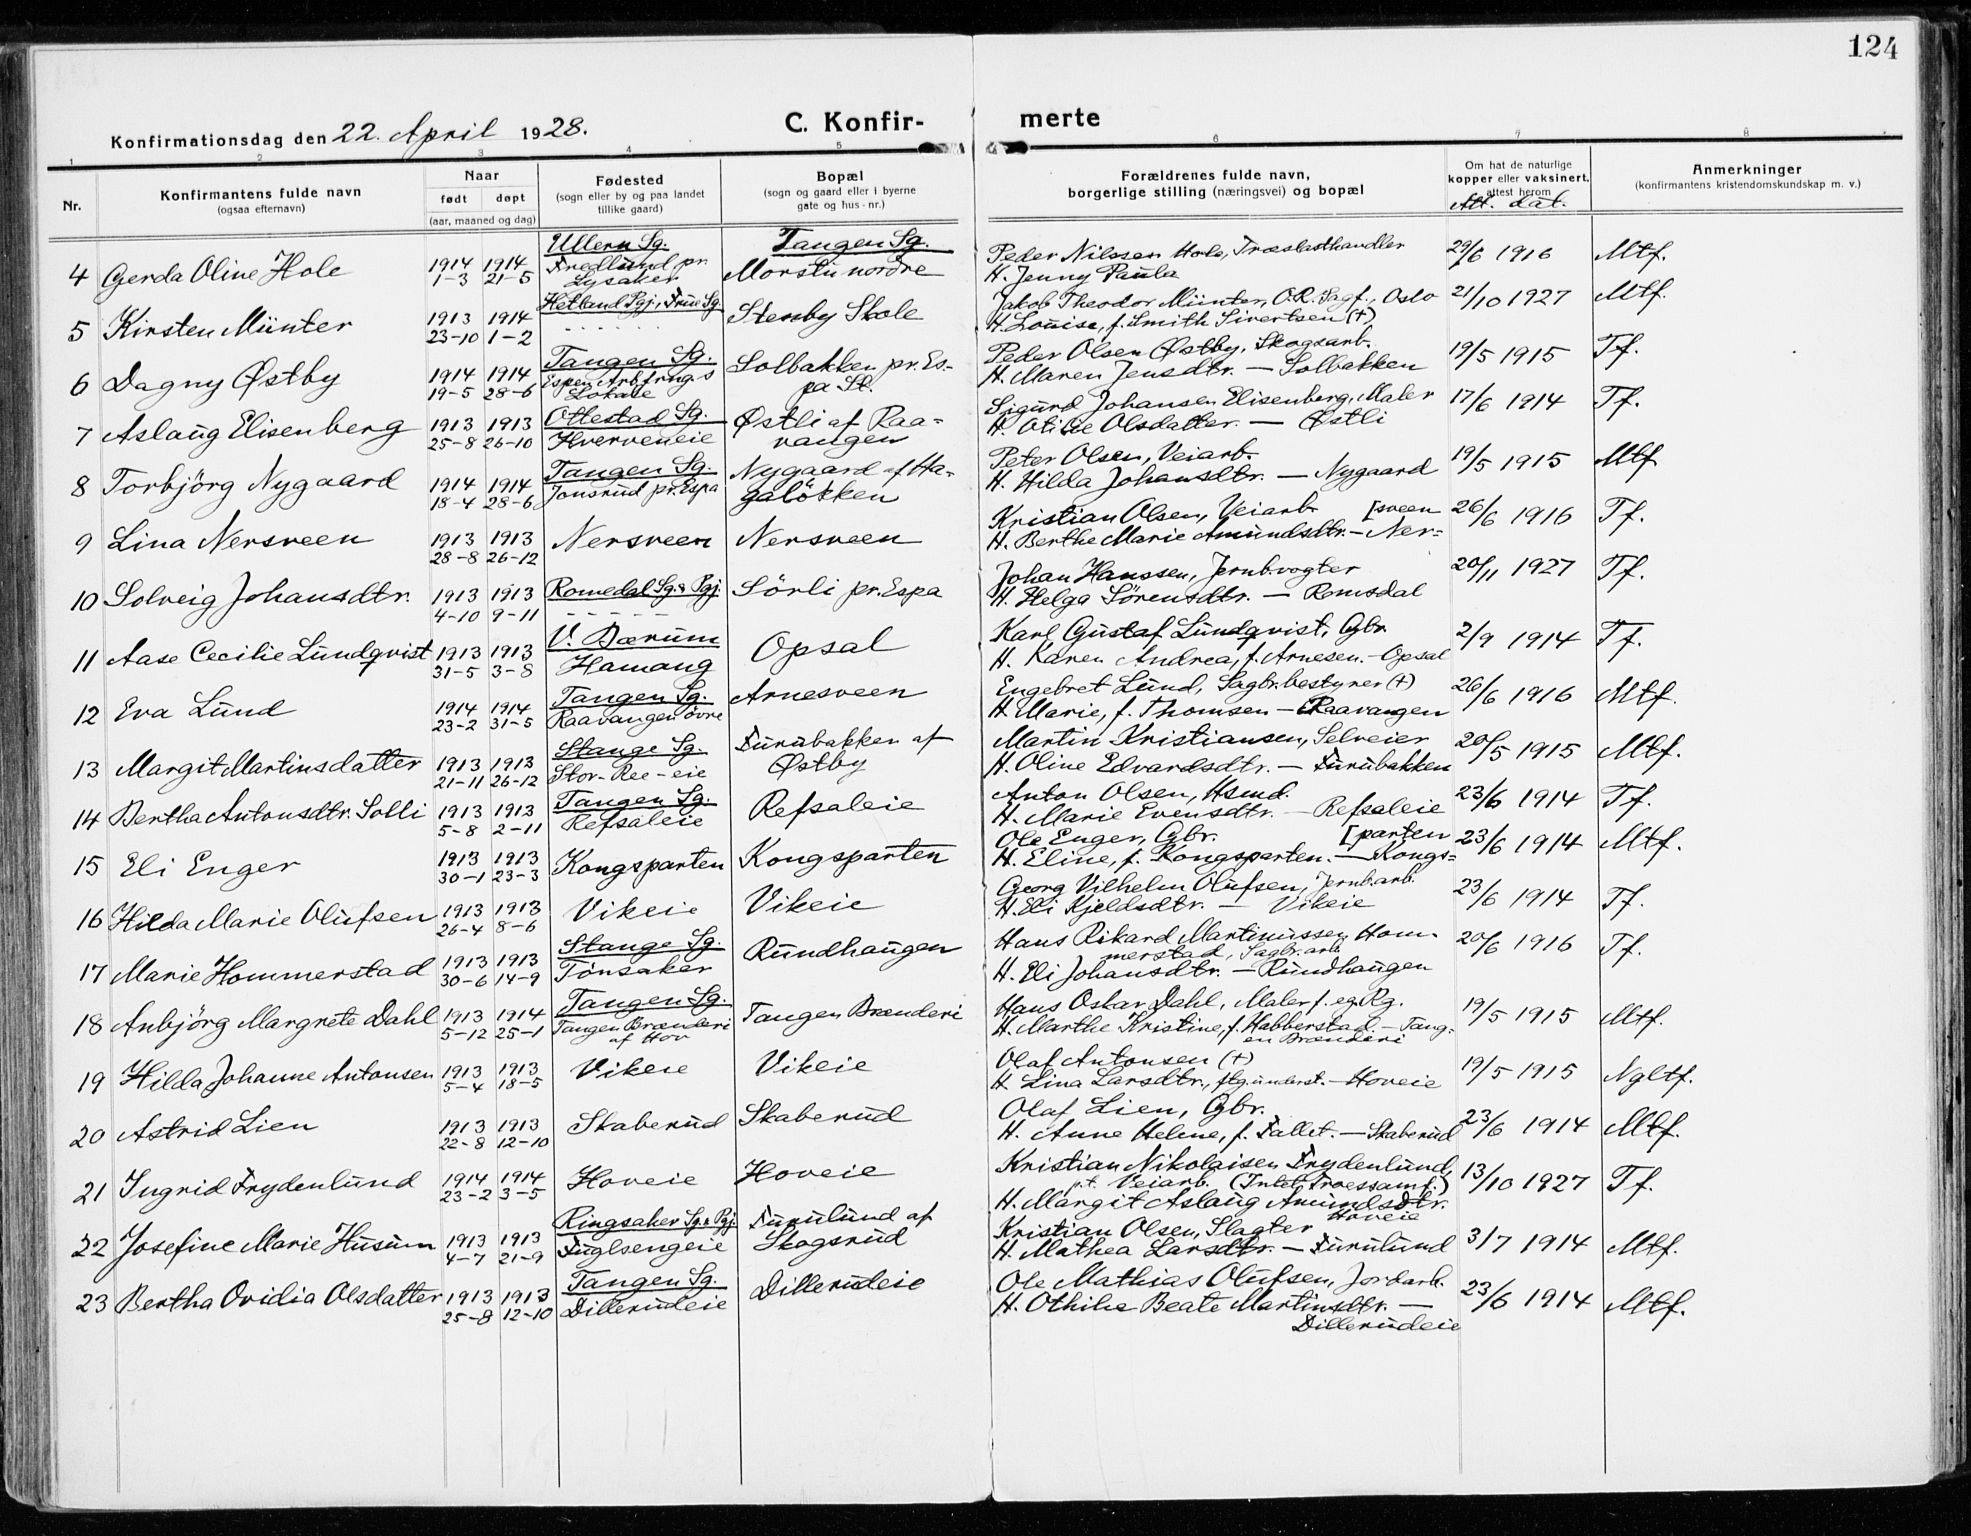 124
Konfirmationsdag den 22. April 1928.
C. Konfir-merte
1 2 3 4 5 6 7 8
Nr.
Konfirmantens fulde navn
(ogsaa efternavn)
Naar
født døpt
(aar, maaned og dag)
Fødested
(sogn eller by og paa landet
tillike gaard)
Bopæl
(sogn og gaard eller i byerne
gate og hus-nr.)
Forældrenes fulde navn,
borgerlige stilling (næringsvei) og bopæl
Om hat de naturlige
kopper eller vaksinert.
attest herom
Att. dat.
Anmerkninger
(konfirmantens kristendomskundskap m. v.)
Ullern Sg. Tangen Sg.
4 Gerda Oline Hole 1914 1-3 1914 21-5 Fredlund pr. Lysaker Morstu nordre
Peder Nilssen Hole, Træslasthandler
H. Jenny Paula
29/6 1916 Mtf.
5 Kirsten Münter 1913 23-10 1914 1-2 Hetland Pgj, Frue Sg. Stenby Skole
Jakob Theodor Münter, O.R. Sagf., Oslo
H. Louise, f. Smith Sivertsen (+)
21/10 1927 Mtf.
6 Dagny Østby 1914 19-5 1914 28-6 Tangen Sg. Espen Arbfrngs Lokale Solbakken pr. Es-
pa St.
Peder Olsen Østby, Skogsarb.
H. Maren Jensdtr. — Solbakken
19/5 1915 Tf.
7 Aslaug Elisenberg 1913 25-8 1913 26-10 Ottestad Sg. Hverveneie Østli af Raa-
vangen
Sigurd Johansen Elisenberg, Maler
H. Otilie Olsdatter. — Østli
17/6 1914 Tf.
8 Torbjörg Nygaard 1914 18-4 1914 28-6 Tangen Sg. Jonsrud pr. Espa Nygaard af Ha-
galökken
Peter Olsen, Veiarb.
H. Hilda Johansdtr. — Nygaard
19/5 1915 Mtf
9 Lina Nersveen 1913 28-8 1913 26-12 Nersveen Nersveen
Kristian Olsen, Veiarb. [sveen
H. Berthe Marie Amundsdtr. — Ner-
26/6 1916 Tf.
10 Solveig Johansdtr. 1913 4-10 1913 9-11 Romedal Sg. & Pgj. Sörli pr. Espa
Johan Hanssen, Jernb.vogter
H. Helga Sörensdtr. — Romsdal
20/11 1927 Tf.
11 Aase Cecilie Lundqvist 1913 31-5 1913 3-8 V. Bærum Hamang Opsal
Karl Gustaf Lundqvist, Gbr.
H. Karen Andrea, f. Arnesen. — Opsal
2/9 1914 Tf.
12 Eva Lund 1914 23-2 1914 31-5 Tangen Sg. Raavangen övre Arnesveen
Engebret Lund, Sagbr.bestyrer (+)
H. Marie, f. Thomsen — Raavangen
26/6 1916 Mtf.
13 Margit Martinsdatter 1913 21-11 1913 26-12 Stange Sg. Stor-Ree-eie Furubakken af
Østby
Martin Kristiansen, Selveier
H. Oline Edvardsdtr. — Furubakken
20/5 1915 Mtf.
14 Bertha Antonsdtr. Solli 1913 5-8 1913 2-11 Tangen Sg. Refsaleie Refsaleie
Anton Olsen, Hsmd.
H. Marie Evensdtr. — Refsaleie
23/6 1914 Tf.
15 Eli Enger 1913 30-1 1913 23-3 Kongsparten Kongsparten
Ole Enger, Gbr. [parten
H. Eline, f. Kongsparten. — Kongs-
23/6 1914 Mtf.
16 Hilda Marie Olufsen 1913 26-4 1913 8-6 Vikeie Vikeie
Georg Vilhelm Olufsen, Jernb.arb.
H. Eli Kjeldsdtr. — Vikeie
23/6 1914 Tf.
17 Marie Hommerstad 1913 30-6 1913 14-9 Stange Sg. Tønsaker Rundhaugen
Hans Rikard Martinussen Hom-
merstad, Sagbr.arb.
H. Eli Johansdtr. — Rundhaugen
20/6 1916 Tf.
18 Anbjörg Margrete Dahl 1913 5-12 1914 25-1 Tangen Sg. Tangen Brænderi af Hov Tangen Brænderi
Hans Oskar Dahl, Maler f. eg. Rg.
H. Marthe Kristine, f. Habberstad. — Tang-
en Brænderi
19/5 1915 Mtf.
19 Hilda Johanne Antonsen 1913 5-4 1913 18-5 Vikeie Vikeie
Olaf Antonsen (+)
H. Lina Larsdtr., ftg.underst. — Hoveie
19/5 1915 Ngltf.
20 Astrid Lien 1913 22-8 1913 12-10 Skaberud Skaberud
Olaf Lien, Gbr.
H. Anne Helene, f. Fallet. — Skaberud
23/6 1914 Mtf.
21 Ingrid Frydenlund 1914 23-2 1914 3-5 Hoveie Hoveie
Kristian Nikolaisen Frydenlund,
p.t. Veiarb. (Intet Troessamf.)
H. Margit Aslaug Amundsdtr.
Hoveie
13/10 1927 Tf.
22 Josefine Marie Husum 1913 4-7 1913 21-9 Ringsaker Sg. & Pgj. Fuglsengeie Furulund af
Skogsrud
Kristian Olsen, Slagter
H. Mathea Larsdtr. — Furulund
3/7 1914 Mtf.
23 Bertha Ovidia Olsdatter 1913 25-8 1913 12-10 Tangen Sg. Dillerudeie Dillerudeie
Ole Mathias Olufsen, Jordarb.
H. Othilie Beate Martinsdtr. —
Dillerudeie
23/6 1914 Mtf.